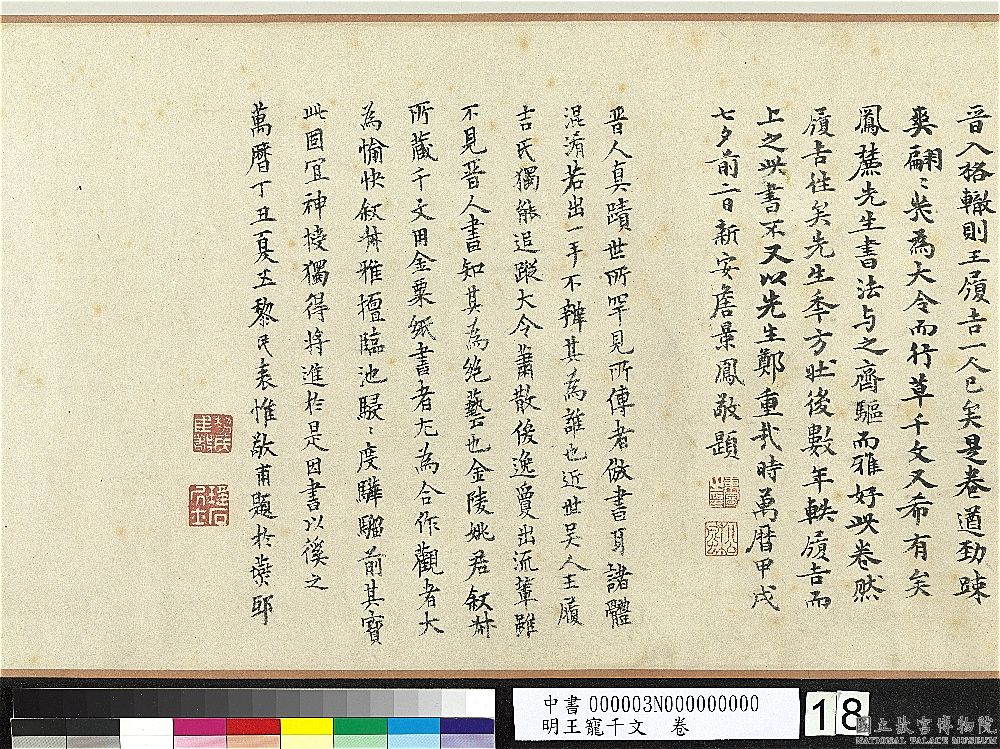 晉入格轍則王履吉一人已矣是卷遒勁踈
爽翩〻柴為大令而行草千文又希有矣
鳳麓先生書法与之齊驅而雅好此卷然
履吉往矣先生年方壯後數年軼履吉而
上之此書不又以先生鄭重哉時萬曆甲戌
七夕前二日新安詹景鳳敬題
晉人真蹟世所罕見所傳者倣書耳諸體
混淆若出一手不辨其為誰也近世吳人王履
吉氏獨能追蹤大令蕭散俊逸夐出流輩雖
不見晉人書知其為絕藝也金陵姚君叙州
所藏千文用金粟紙書者尤為合作觀者大
為愉快叙州雅擅臨池駸〻度驊騮前其寶
此固宜神授獨得將進於是因書以徯之
萬曆丁丑夏五黎民表惟敬甫題於燕邸
中書 000003N000000000
明王寵千文 卷
18
國立故宮博物院
NATIONAL PALACE MUSEUM